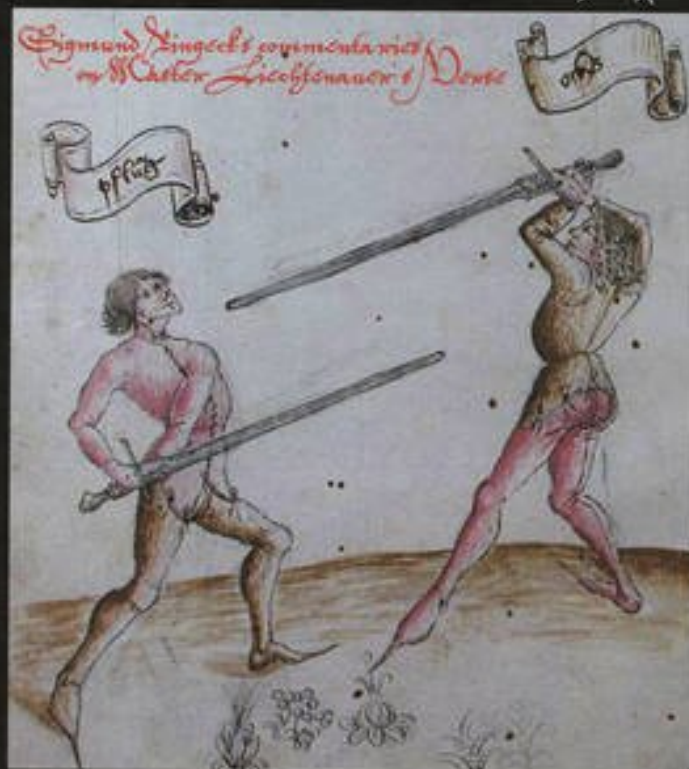 Sigmund Ringeck's commentaries
on Master Liechtenauer's Verse
ochs
pflug